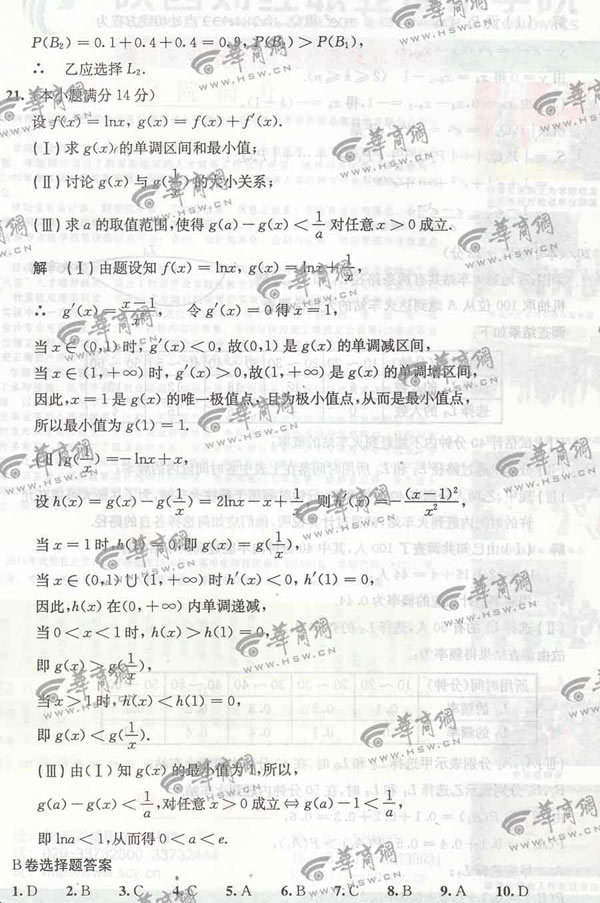 P(B₂)=0.1+0.4+0.4=0.9, P(B₂)>P(B₁),
∴ 乙应选择L₂.
21. (本小题满分14分)
设f(x)=lnx, g(x)=f(x)+f′(x).
(Ⅰ)求g(x)的单调区间和最小值;
(Ⅱ)讨论g(x)与g(1/x)的大小关系;
(Ⅲ)求a的取值范围,使得g(a)-g(x)<1/a对任意x>0成立.
解 (Ⅰ)由题设知f(x)=lnx, g(x)=lnx+1/x,
∴ g′(x)=(x-1)/x², 令g′(x)=0得x=1,
当x∈(0,1)时,g′(x)<0,故(0,1)是g(x)的单调减区间,
当x∈(1,+∞)时,g′(x)>0,故(1,+∞)是g(x)的单调增区间,
因此,x=1是g(x)的唯一极值点,且为极小值点,从而是最小值点,
所以最小值为g(1)=1.
(Ⅱ)g(1/x)=-lnx+x,
设h(x)=g(x)-g(1/x)=2lnx-x+1/x, 则h′(x)=-(x-1)²/x²,
当x=1时,h(1)=0,即g(x)=g(1/x),
当x∈(0,1)∪(1,+∞)时h′(x)<0, h′(1)=0,
因此,h(x)在(0,+∞)内单调递减,
当0<x<1时,h(x)>h(1)=0,
即g(x)>g(1/x),
当x>1时,h(x)<h(1)=0,
即g(x)<g(1/x).
(Ⅲ)由(Ⅰ)知g(x)的最小值为1,所以,
g(a)-g(x)<1/a,对任意x>0成立⇔g(a)-1<1/a,
即lna<1,从而得0<a<e.
B卷选择题答案
1. D 2. B 3. C 4. C 5. A 6. B 7. C 8. B 9. A 10. D
華商網
WWW.HSW.CN